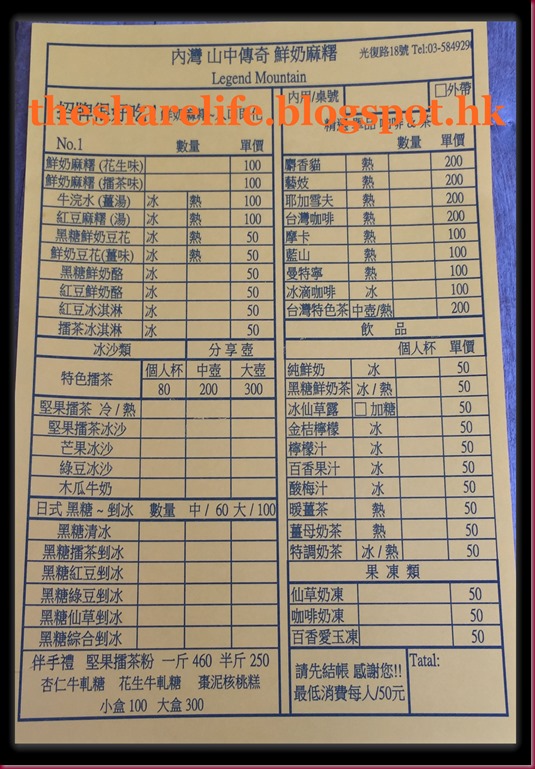 內灣 山中傳奇 鮮奶麻糬
光復路18號 Tel:03-584929
Legend Mountain
thesharelife.blogspot.hk
No.1 數量 單價
鮮奶麻糬 (花生味) 100
鮮奶麻糬 (擂茶味) 100
牛浣水 (薑湯) 冰 熱 100
紅豆麻糬 (湯) 冰 熱 100
黑糖鮮奶豆花 冰 熱 50
鮮奶豆花(薑味) 冰 熱 50
黑糖鮮奶酪 冰 50
紅豆鮮奶酪 冰 50
紅豆冰淇淋 冰 50
擂茶冰淇淋 冰 50
冰沙類 分享壺
特色擂茶 個人杯 中壺 大壺
80 200 300
堅果擂茶 冷 / 熱
堅果擂茶冰沙
芒果冰沙
綠豆冰沙
木瓜牛奶
日式 黑糖 ~ 剉冰 數量 中 / 60 大 / 100
黑糖清冰
黑糖擂茶剉冰
黑糖紅豆剉冰
黑糖綠豆剉冰
黑糖仙草剉冰
黑糖綜合剉冰
伴手禮 堅果擂茶粉 一斤 460 半斤 250
杏仁牛軋糖 花生牛軋糖 棗泥核桃糕
小盒 100 大盒 300
內用/桌號 □外帶
數量 單價
麝香貓 熱 200
藝妓 熱 200
耶加雪夫 熱 200
台灣咖啡 熱 200
摩卡 熱 100
藍山 熱 100
曼特寧 熱 100
冰滴咖啡 冰 100
台灣特色茶 中壺/熱 200
飲 品
個人杯 單價
純鮮奶 冰 50
黑糖鮮奶茶 冰 / 熱 50
冰仙草露 □ 加糖 50
金桔檸檬 冰 50
檸檬汁 冰 50
百香果汁 冰 50
酸梅汁 冰 50
暖薑茶 熱 50
薑母奶茶 熱 50
特調奶茶 冰 / 熱 50
果 凍 類
仙草奶凍 50
咖啡奶凍 50
百香愛玉凍 50
請先結帳 感謝您!!
最低消費每人/50元
Tatal: